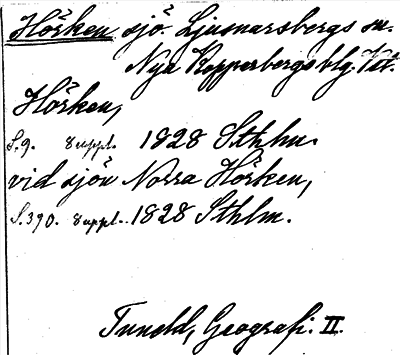 Hörken, sjö. Ljusnarsbergs sn.
Nya Kopparbergs blg. Vst.
Hörken,
S. 9. Suppl. 1828 Sthlm.
vid sjön Norra Hörken,
S. 390. Suppl. 1828 Sthlm.
Tuneld, Geografi. II.